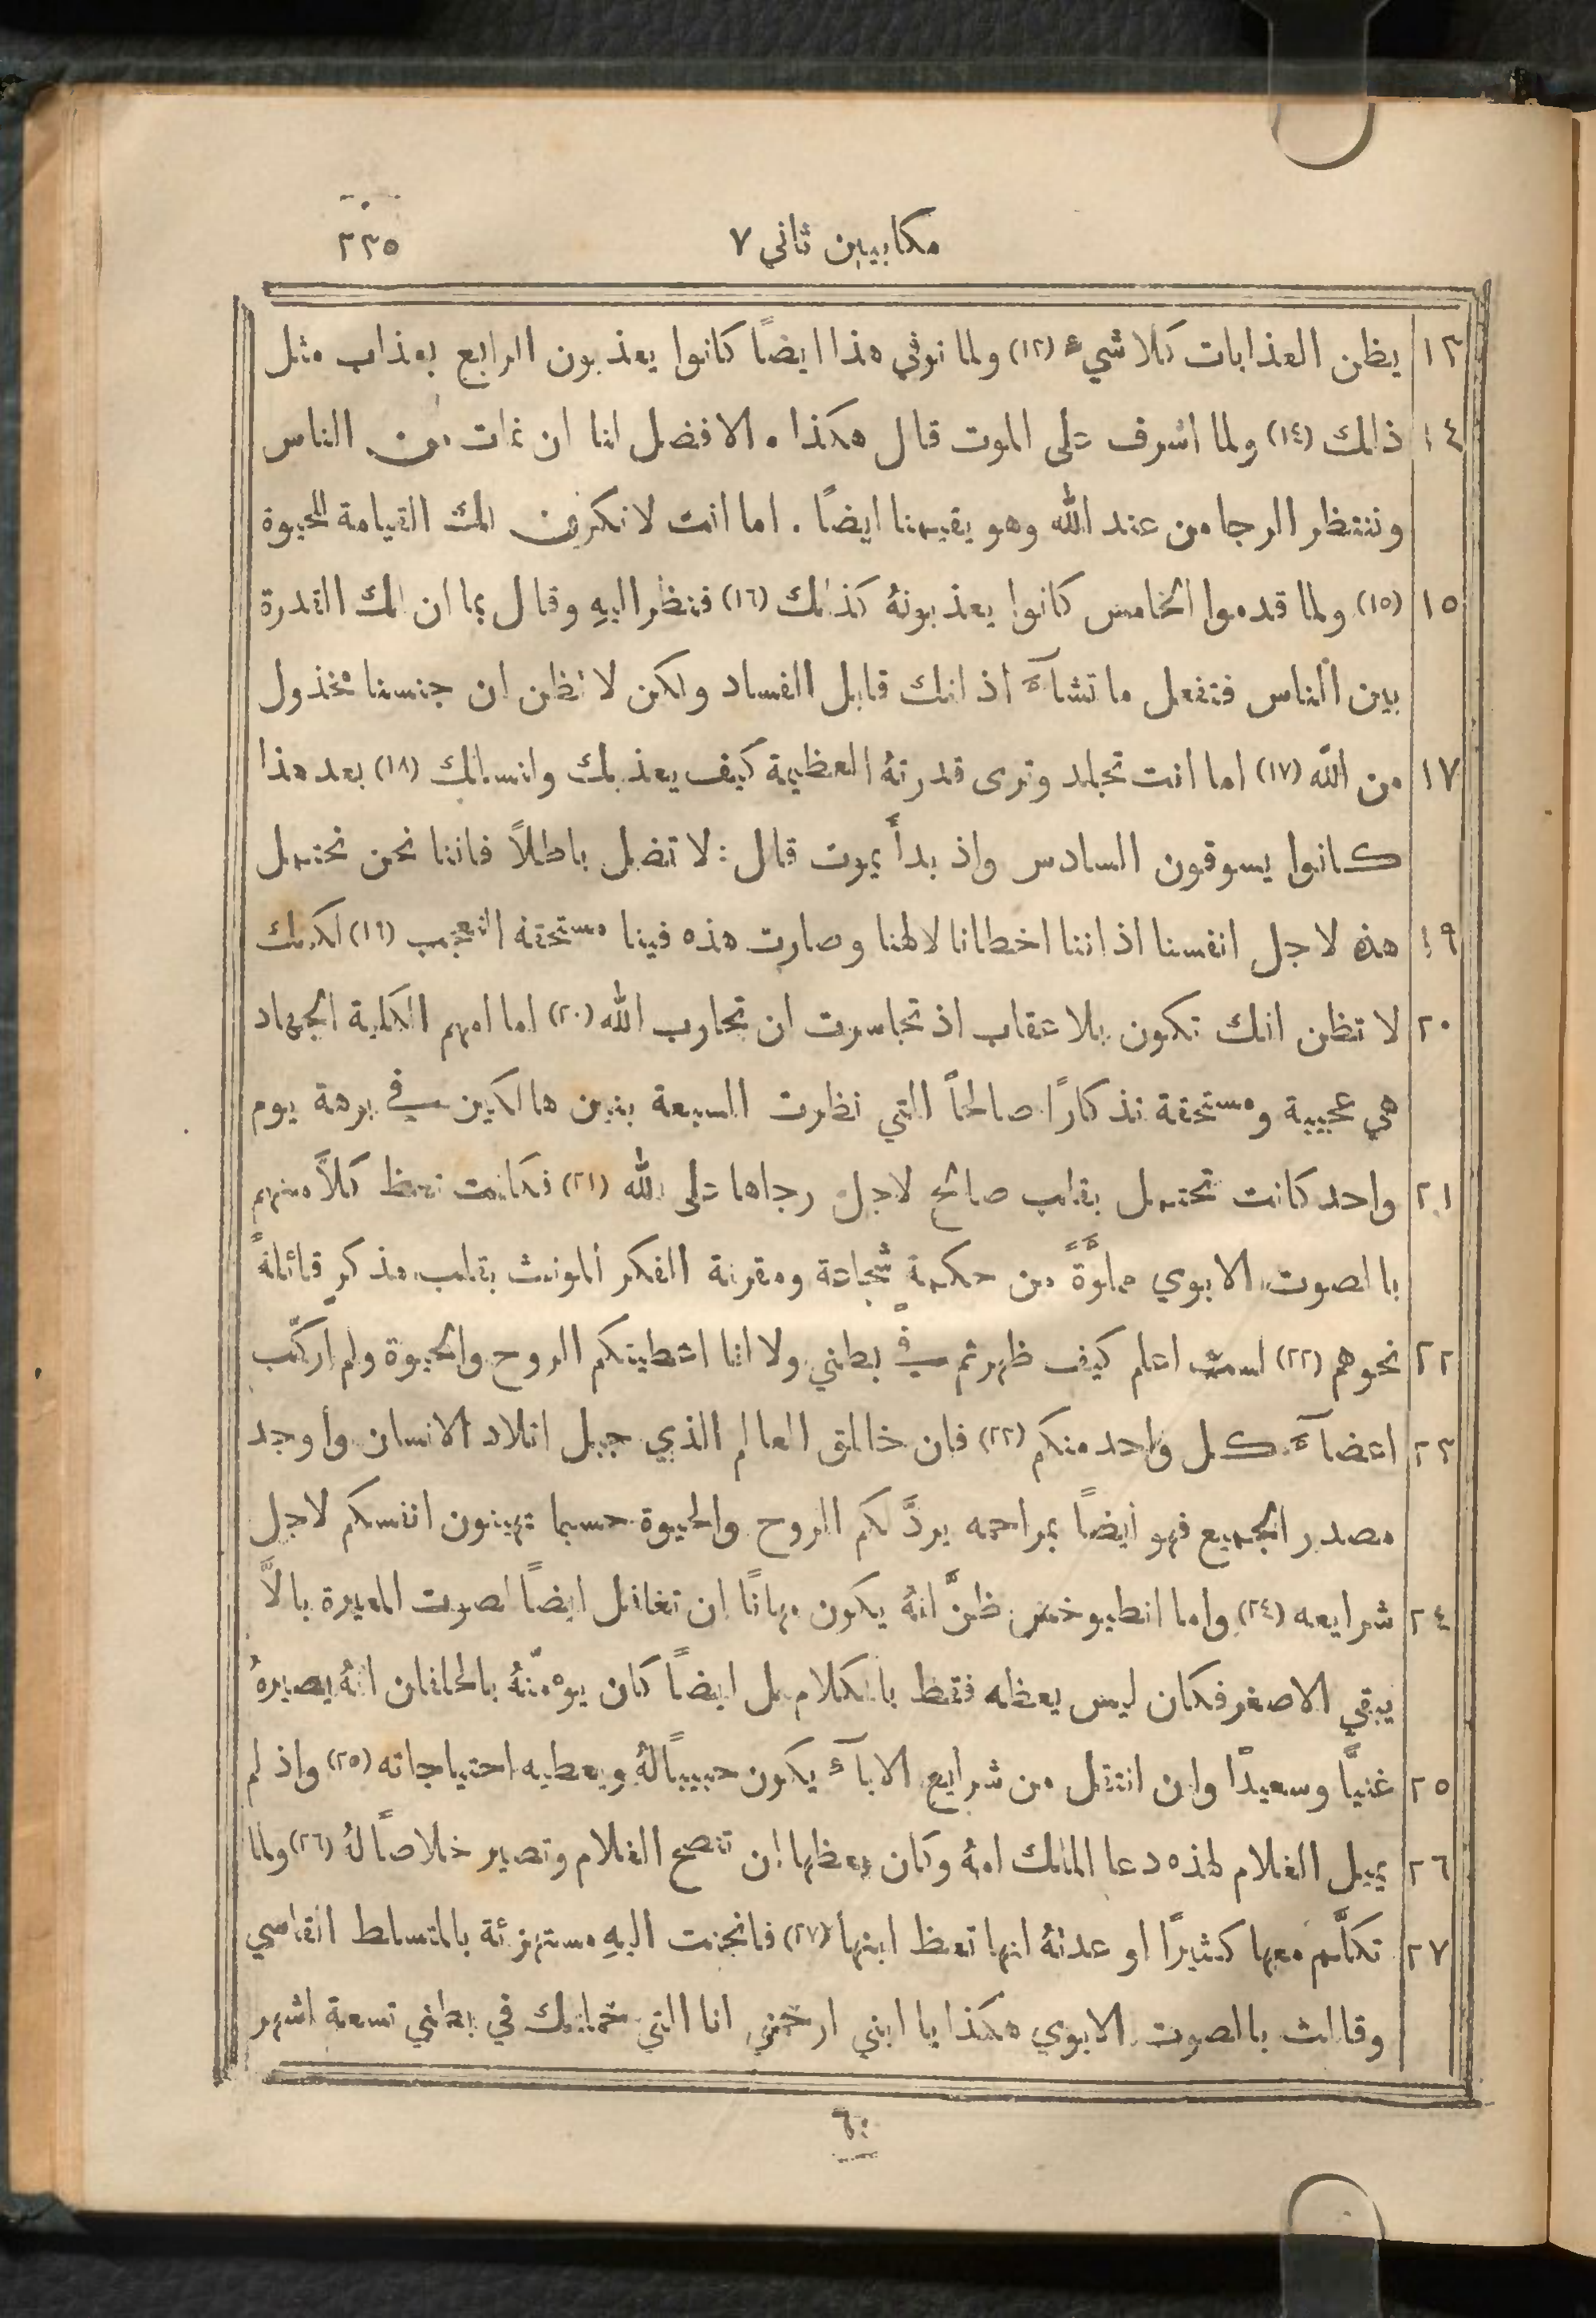 مكابيين ثاني ٧
٢٣٥
١٣ يظن العذابات كلا شيء (١٣) ولما توفي هذا ايضًا كانوا يعذبون الرابع بعذاب مثل
١٤ ذلك (١٤) ولما اشرف على الموت قال هكذا . الافضل لنا ان نمات من الناس
وننتظر الرجا من عند الله وهو يقيمنا ايضًا . اما انت لا تكون لك القيامة للحيوة
١٥ (١٥) ولما قدموا الخامس كانوا يعذبونهُ كذلك (١٦) فنظر اليهِ وقال بما ان لك القدرة
بين الناس فتفعل ما تشآء اذ انك قابل الفساد ولكن لا تظن ان جنسنا مخذول
١٧ من الله (١٧) اما انت تجلد وترى قدرتهُ العظيمة كيف يعذبك وانسالك (١٨) بعد هذا
كانوا يسوقون السادس واذ بدأ يموت قال : لا تضل باطلاً فاننا نحن نحتمل
١٩ هذه لاجل انفسنا اذ اننا اخطانا لالهنا وصارت هذه فينا مستحقة التعجب (١٩) لكنك
٢٠ لا تظن انك تكون بلا عقاب اذ تجاسرت ان تحارب الله (٢٠) اما امهم الكلية الجهاد
هي عجيبة ومستحقة تذكارًا صالحًا التي نظرت السبعة بنين هالكين في برهة يوم
٢١ واحد كانت تحتمل بقلب صالح لاجل رجاها على الله (٢١) فكانت تعظ كلاً منهم
بالصوت الابوي مملوَّةً من حكمةٍ شجاعة ومقرنة الفكر المونث بقلب مذكرٍ قائلةً
٢٢ نحوهم (٢٢) لست اعلم كيف ظهرتم في بطني ولا انا اعطيتكم الروح والحيوة ولم اركّب
٢٣ اعضآء كل واحد منكم (٢٣) فان خالق العالم الذي جبل اتلاد الانسان وأوجد
مصدر الجميع فهو ايضًا بمراحمه يردَّ لكم الروح والحيوة حسبما تهينون انفسكم لاجل
٢٤ شرايعه (٢٤) واما انطيوخس ظنَّ انهُ يكون مهانًا ان تغافل ايضًا لصوت المعيرة بالاَّ
يبقي الاصغر فكان ليس يعظه فقط بالكلام بل ايضًا كان يوءمّنهُ بالحلفان انهُ يصيرهُ
٢٥ غنيًّا وسعيدًا وان انتقل من شرايع الابآء يكون حبيبًا لهُ ويعطيه احتياجاته (٢٥) واذ لم
٢٦ يميل الغلام لهذه دعا الملك امهُ وكان يعظها ان تنصح الغلام وتصير خلاصًا لهُ (٢٦) ولما
٢٧ تكلَّم معها كثيرًا اوعدتهُ انها تعظ ابنها (٢٧) فانحنت اليهِ مستهزئة بالمتسلط القاسي
وقالت بالصوت الابوي هكذا يا ابني ارحمني انا التي حملتك في بطني تسعة اشهر
٦٠